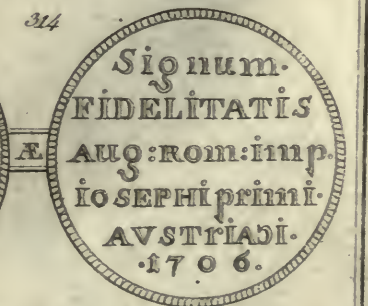 314
Signum·
FIDELITATIS
Æ
AUg:Rom:imp.
ioSEPHi primi·
AVSTriAɔi·
·1706·